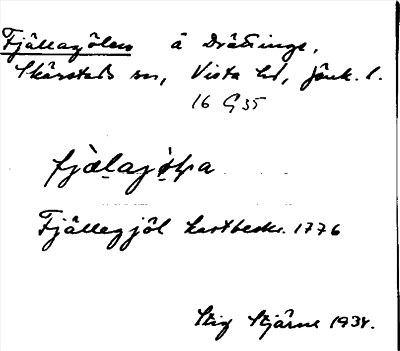 Fjällagölen å Drättinge,
Skärstads sn, Vista hd, Jönk. l.
16 G 35
fjälagjöḷa
Fjällegjöl kartbeskr. 1776
Stig Stjärne 1934.